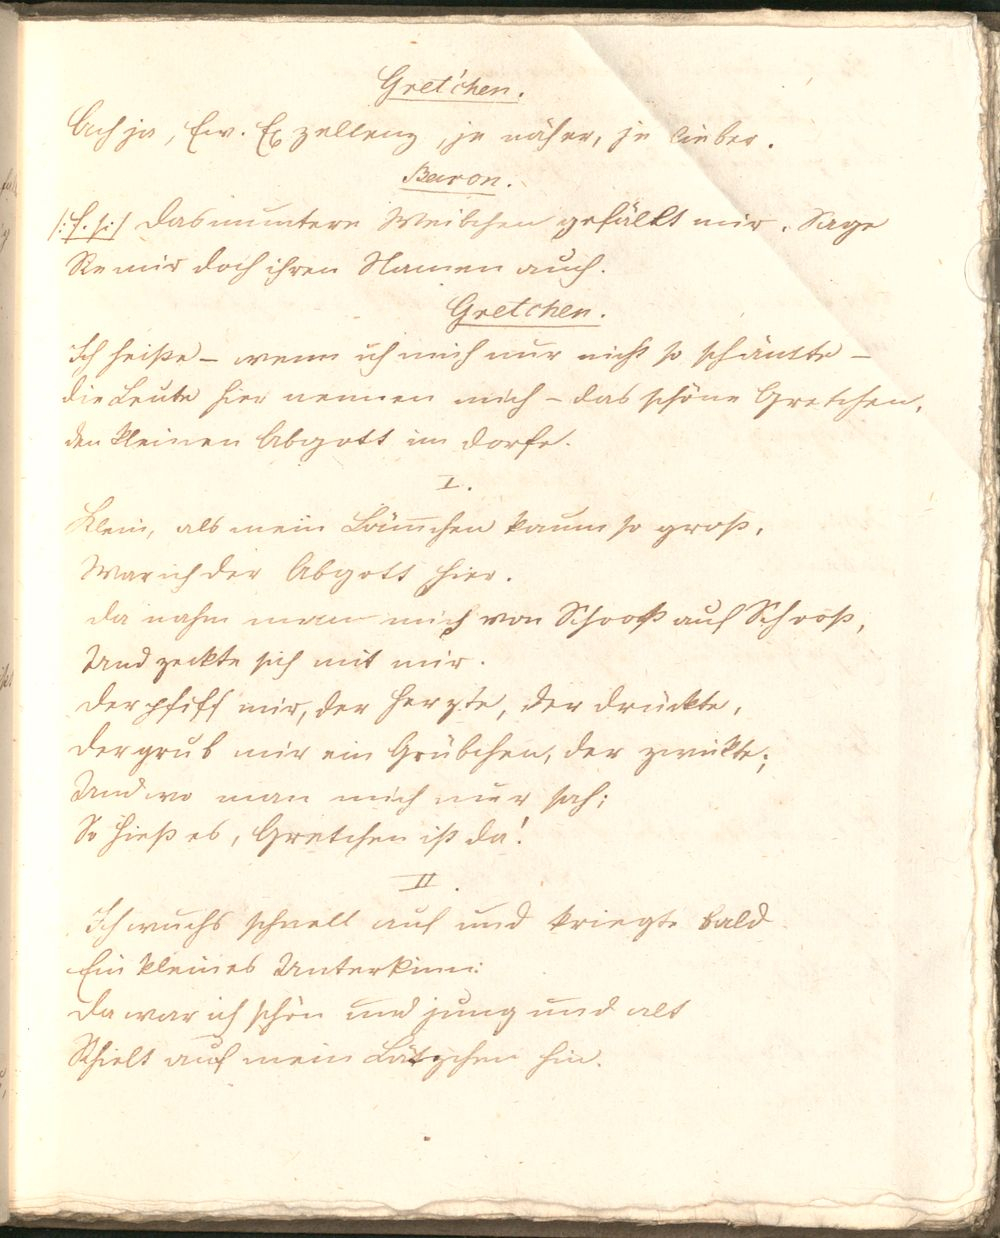 Gretchen.
Ach ja, Ew. Exzellenz, je näher, je lieber.
Baron.
/:f. s:/ Das muntere Weibchen gefällt mir. Sage
Sie mir doch ihren Namen auch.
Gretchen.
Ich heiße – wenn ich mich nur nicht so schämte –
die Leute hier nennen mich – das schöne Gretchen,
den kleinen Abgott im Dorfe.
I.
Klein, als mein Lämchen kaum so groß,
War ich der Abgott hier.
Da nahm man mich von Schooß auf Schooß,
Und zeckte sich mit mir.
Der pfiff mir, der herzte, der drückte,
Der grub mir ein Grübchen, der zwickte;
Und wo man mich nur sah;
So hieß es, Gretchen ist da!
II.
Ich wuchs schnell auf und kriegte bald
Ein kleines Unterkinn:
Da war ich schön und jung und alt
Schielt auf mein Lätzchen hin.